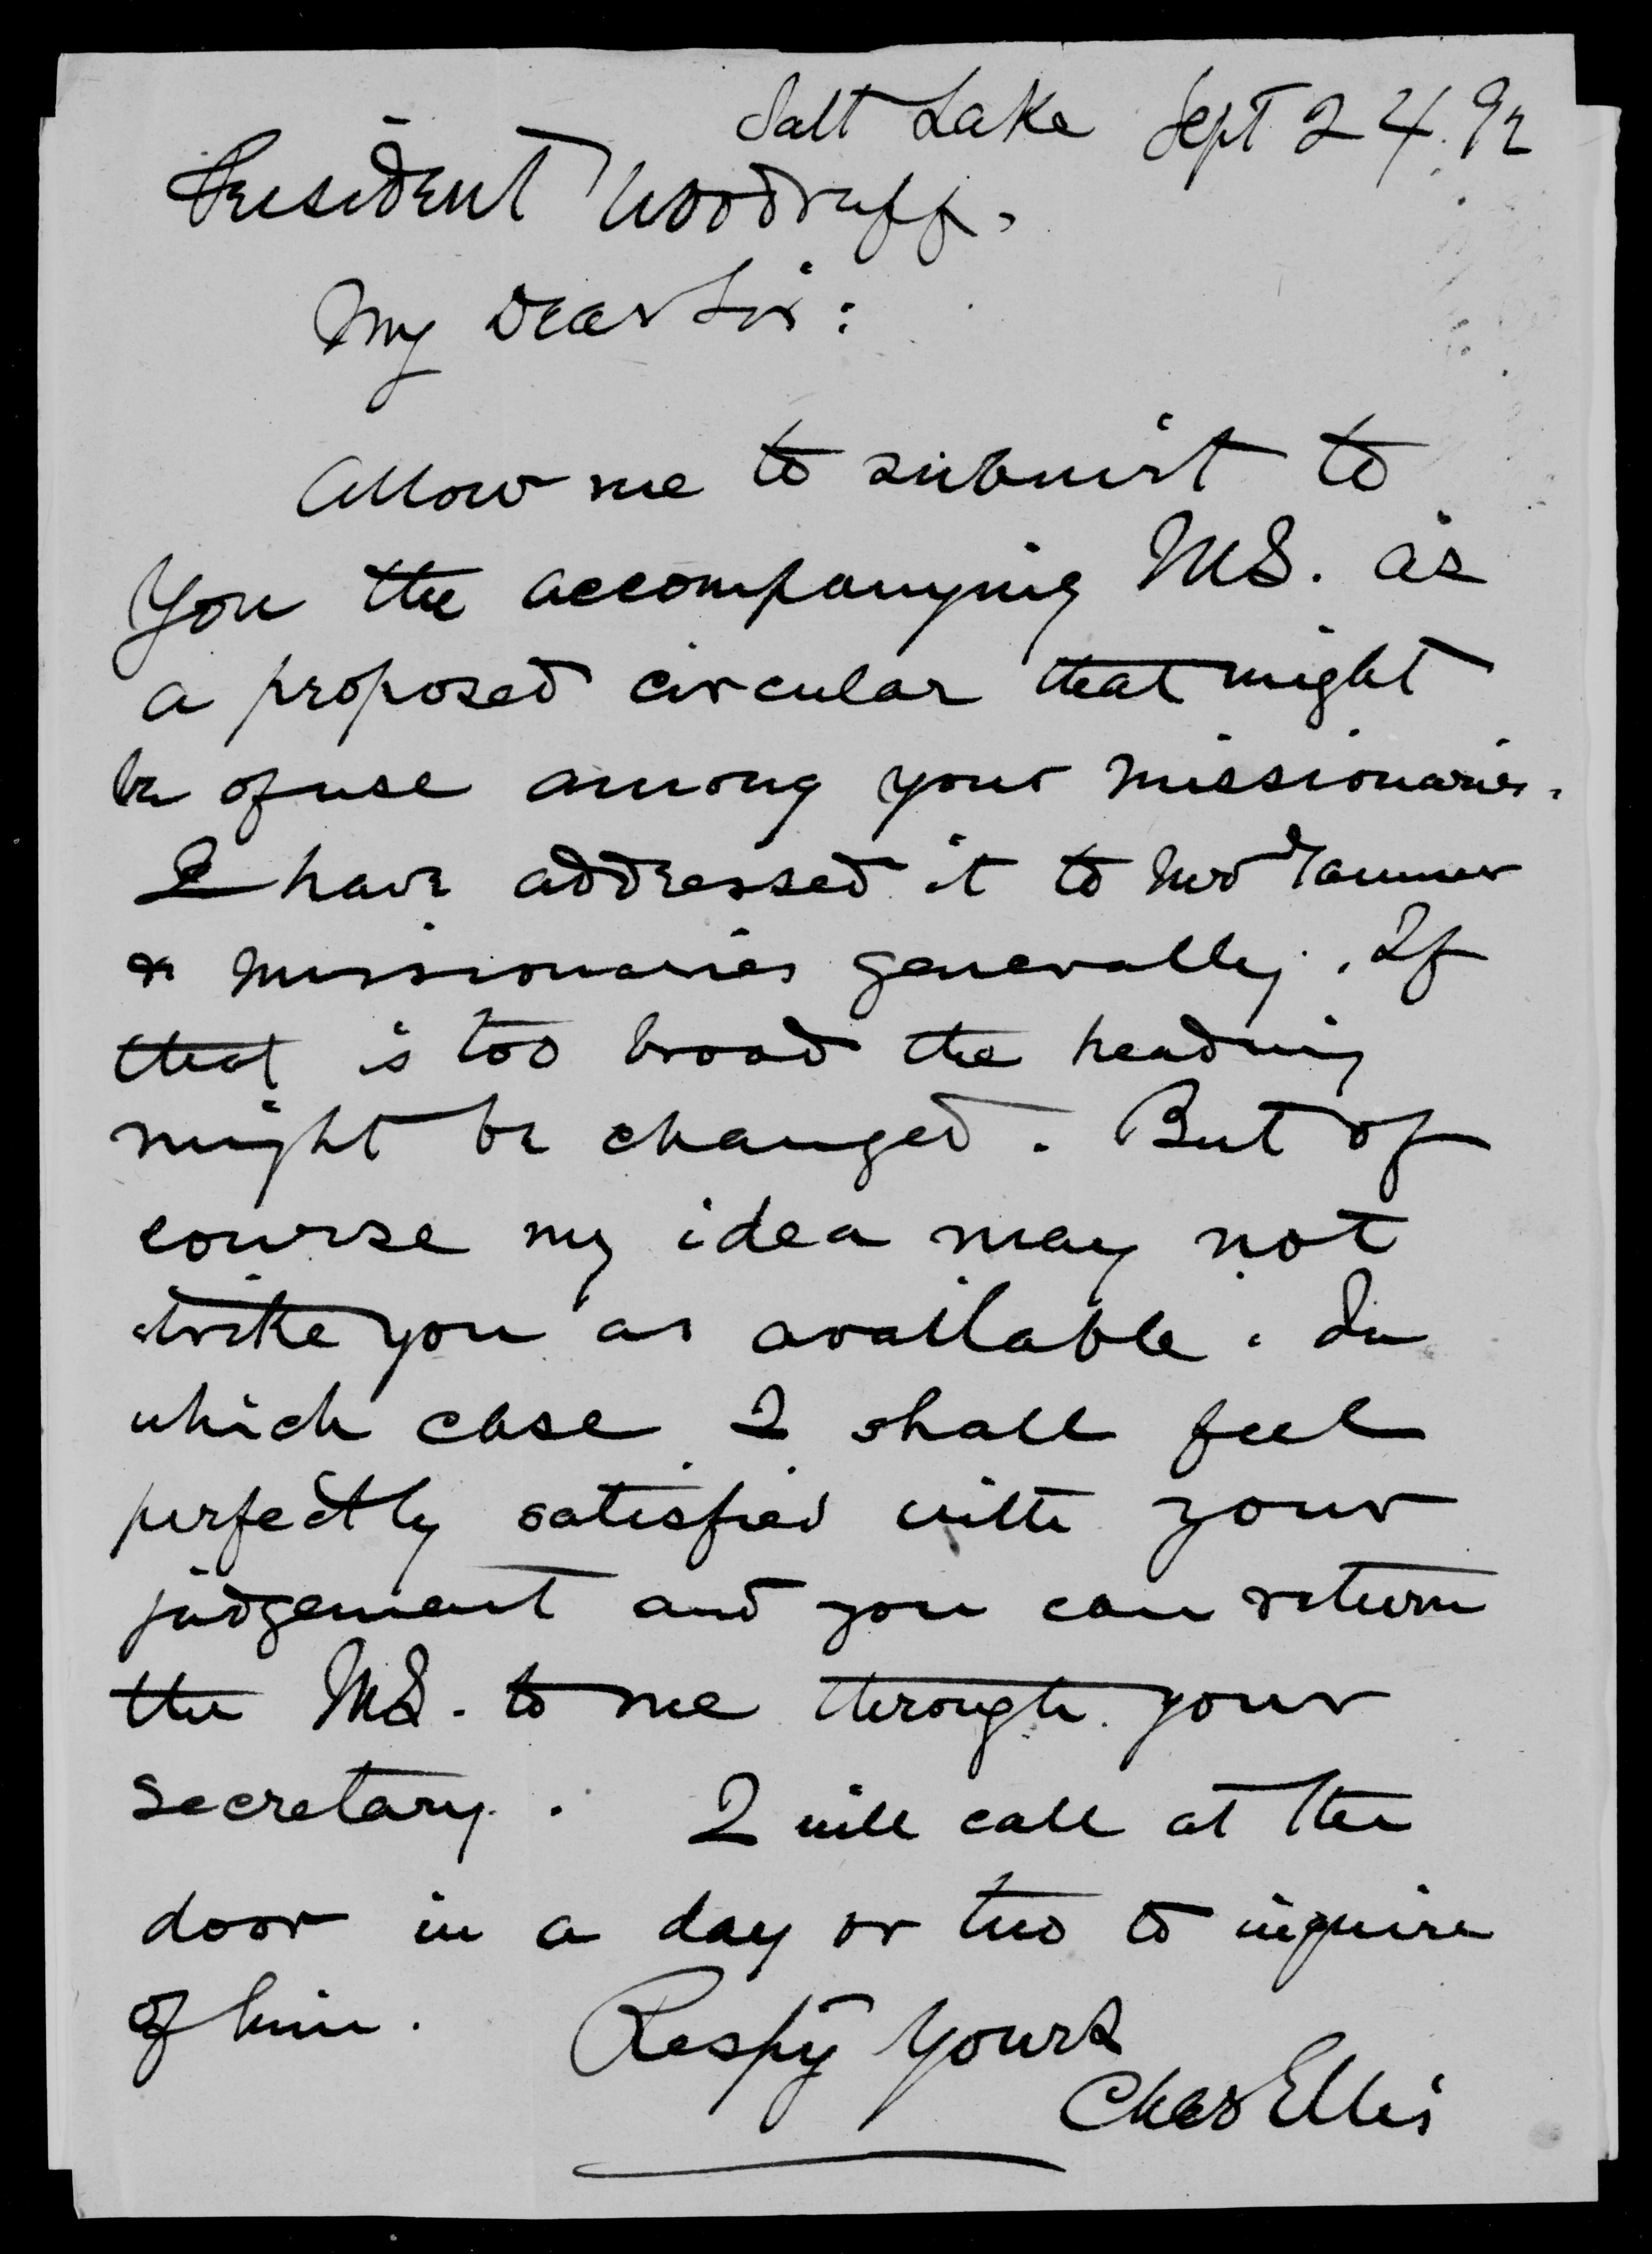 Salt Lake Sept 24. 92
President Woodruff,
My Dear Sir:
Allow me to submit to
you the accompanying MS. as
a proposed circular that might
be of use among your missionaries.
I have addressed it to Mr Tanner
& missionaries generally. If
that is too broad the heading
might be changed. But of
course my idea may not
strike you as available. In
which case I shall feel
perfectly satisfied with your
judgement and you can return
the MS. to me through your
secretary. I will call at the
door in a day or two to inquire
of him.
Respy Yours
Chas Ellis